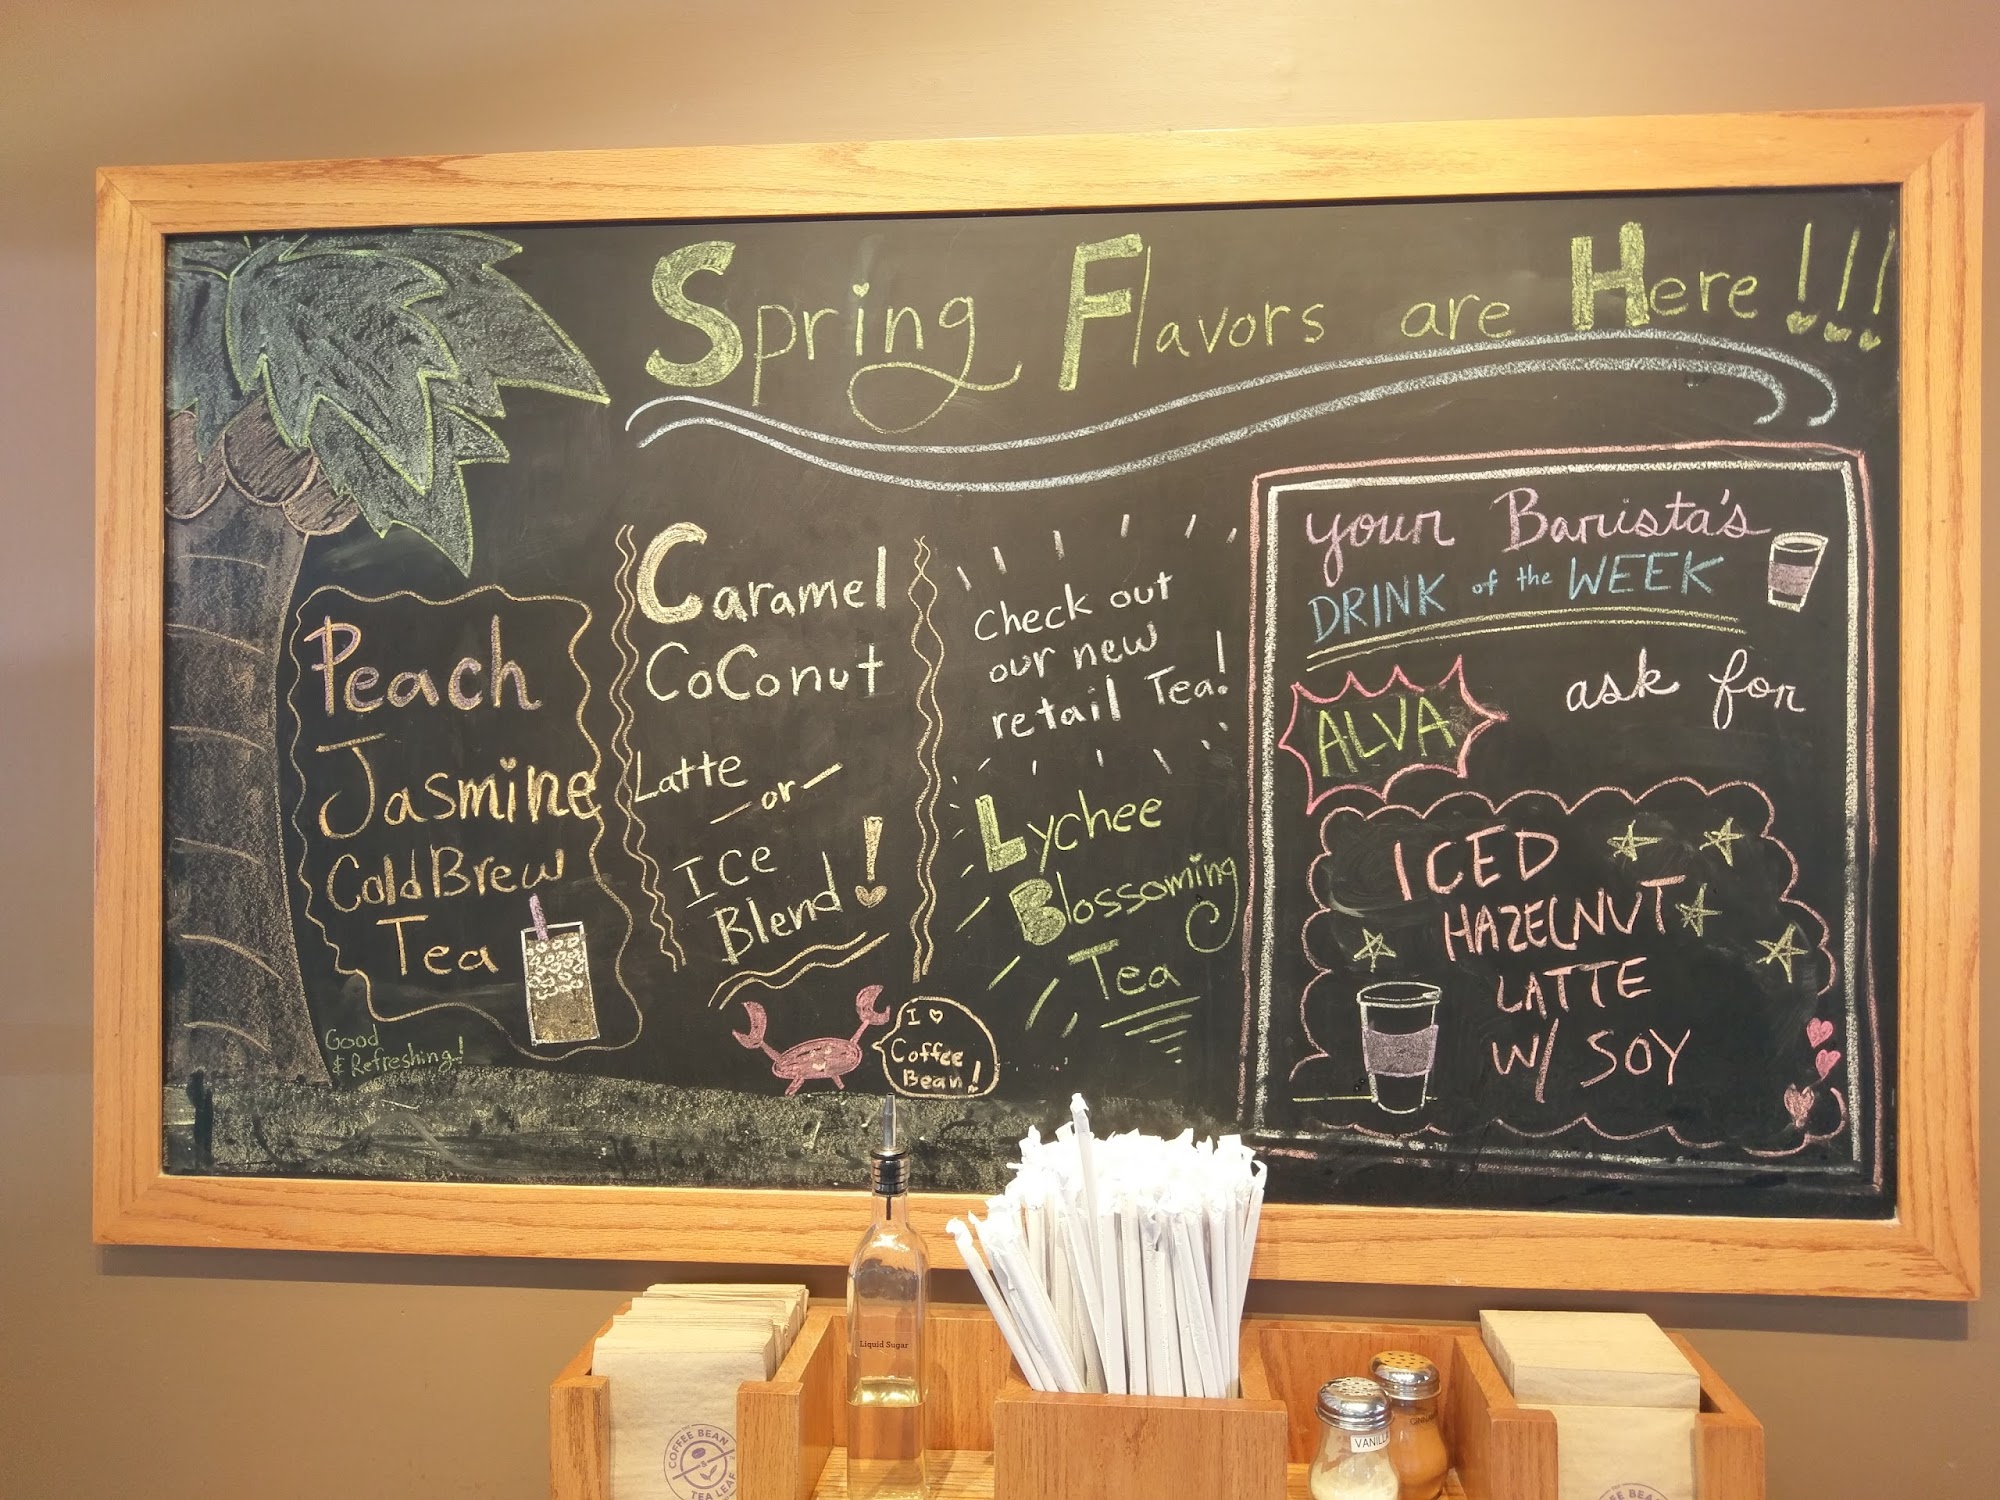 Spring Flavors are Here!!!
Peach
Jasmine
Cold Brew
Tea
Good
& Refreshing!
Caramel
CoConut
Latte
-or-
ICe
Blend!
I ♡
Coffee
Bean!
Check out
our new
retail Tea!
Lychee
Blossoming
Tea
your Barista's
DRINK of the WEEK
ALVA
ask for
ICED
HAZELNUT
LATTE
W/ SOY
Liquid Sugar
COFFEE BEAN
&
TEA LEAF
VANILLA